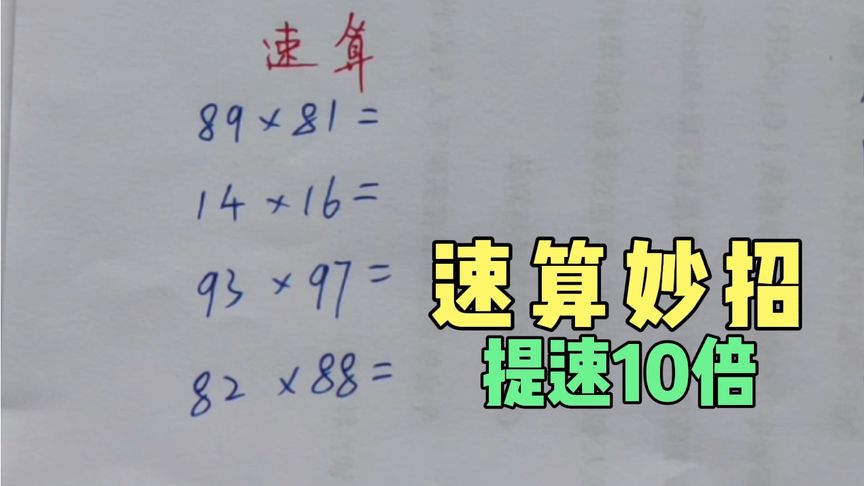 速算
89×81=
14×16=
93×97=
82×88=
速算妙招
提速10倍